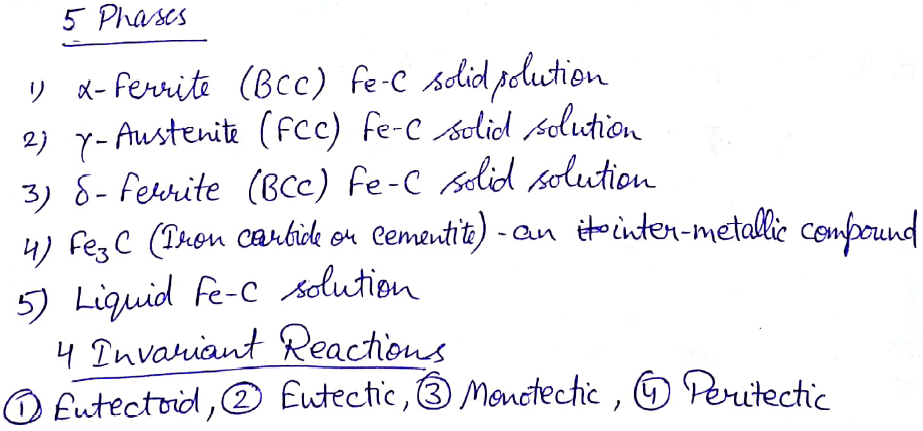 5 Phases
1) α-Ferrite (BCC) Fe-C solid solution
2) γ-Austenite (FCC) Fe-C solid solution
3) δ-Ferrite (BCC) Fe-C solid solution
4) Fe₃C (Iron carbide or cementite) - an inter-metallic compound
5) Liquid Fe-C solution
4 Invariant Reactions
① Eutectoid, ② Eutectic, ③ Monotectic, ④ Peritectic